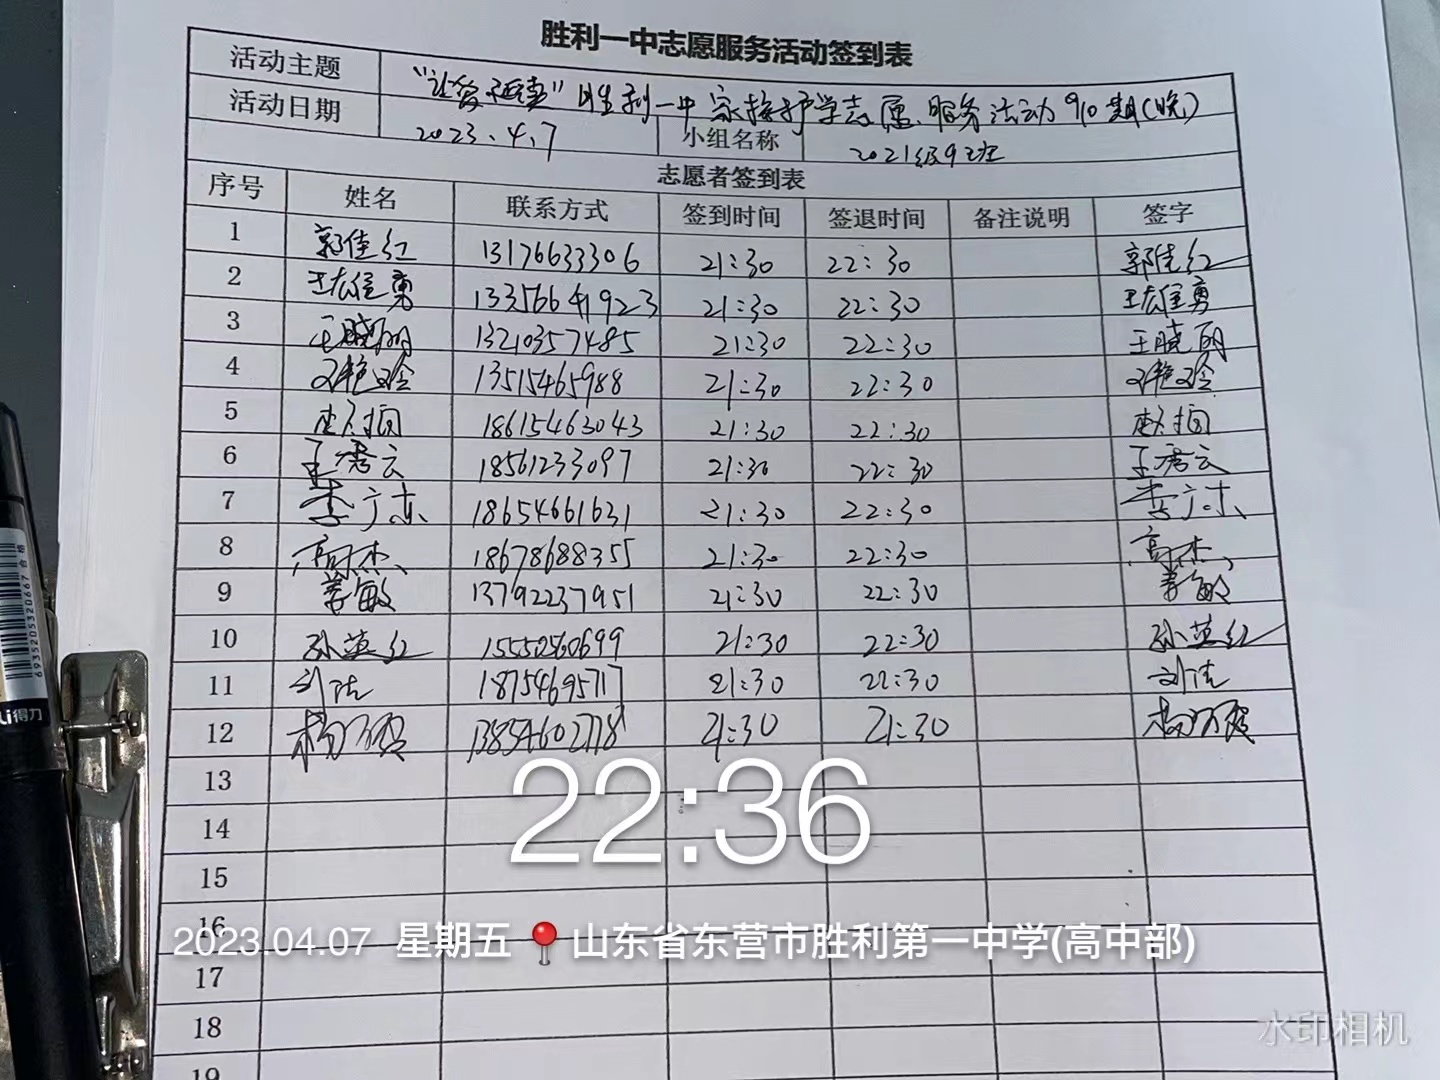 胜利一中志愿服务活动签到表
活动主题 "让爱 " 胜利一中家接护学志愿服务活动 910期(晚)
活动日期 2023.4.7 小组名称 2021级9班
志愿者签到表
序号 姓名 联系方式 签到时间 签退时间 备注说明 签字
1 郭佳红 13176633306 21:30 22:30 郭佳红
2 13356641923 21:30 22:30
3 王晓丽 13210357485 21:30 22:30 王晓丽
4 13515465988 21:30 22:30
5 18615463043 21:30 22:30
6 王秀云 18561233097 21:30 22:30 王秀云
7 李广东 18654661631 21:30 22:30 李广东
8 高杰 18678688355 21:30 22:30 高杰
9 姜敏 13792237951 21:30 22:30 姜敏
10 孙英红 15550560699 21:30 22:30 孙英红
11 刘洁 18754695717 21:30 22:30 刘洁
12 13854602778 21:30 21:30
13
22:36
14
15
16
2023.04.07 星期五 山东省东营市胜利第一中学(高中部)
17
18
水印相机
19
得力
6935205320667